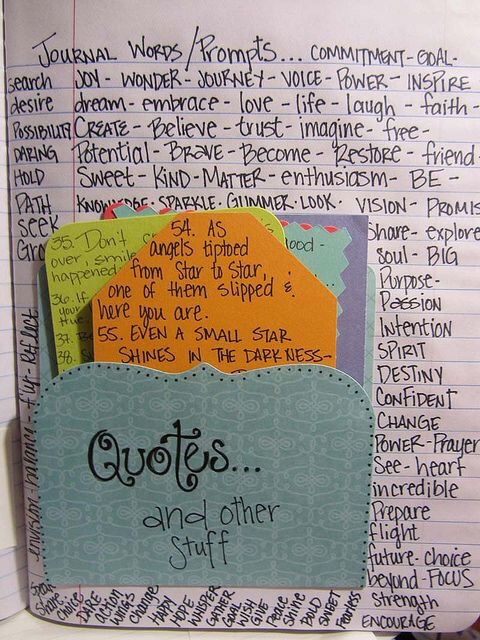 Journal Words/Prompts... COMMITMENT - GOAL -
search JOY - WONDER - JOURNEY - VOICE - POWER - INSPIRE
desire dream - embrace - love - life - laugh - faith -
POSSIBILITY CREATE - Believe - trust - imagine - free -
DARING Potential - BRAVE - Become - RESTORE - friend
HOLD Sweet - KIND - MATTER - enthusiasm - BE -
PATH KNOWLEDGE - SPARKLE - GLIMMER - LOOK - VISION - PROMIS
SEEK
Share - explore
soul - BIG
Purpose -
Passion
Intention
SPIRIT
DESTINY
CONFIDENT
CHANGE
POWER - Prayer
See - heart
incredible
Prepare
flight
future - choice
beyond - FOCUS
Strength
ENCOURAGE
35. Don't
over, smile
happened
36. If
your
37. Be
38.
54. AS
angels tiptoed
from Star to Star,
one of them slipped &
here you are.
55. EVEN A SMALL STAR
SHINES IN THE DARKNESS -
ood -
Quotes...
and other
Stuff
envision - balance - fly - reflect
Speak
Share
choice
DARE
ACTION
WINGS
Change
HAPPY
HOPE
WHISPER
GATHER
GOAL
WISH
GIVE
Peace
Shine
BOLD
SWEET